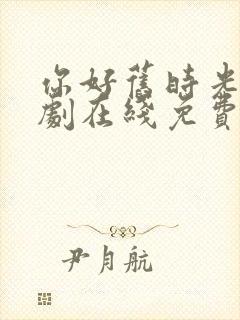 你好舊時光
劇在綫免費
尹月航